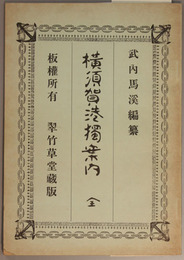 武内馬溪編纂
橫須賀港獨案内 全
板權所有 翠竹草堂藏版